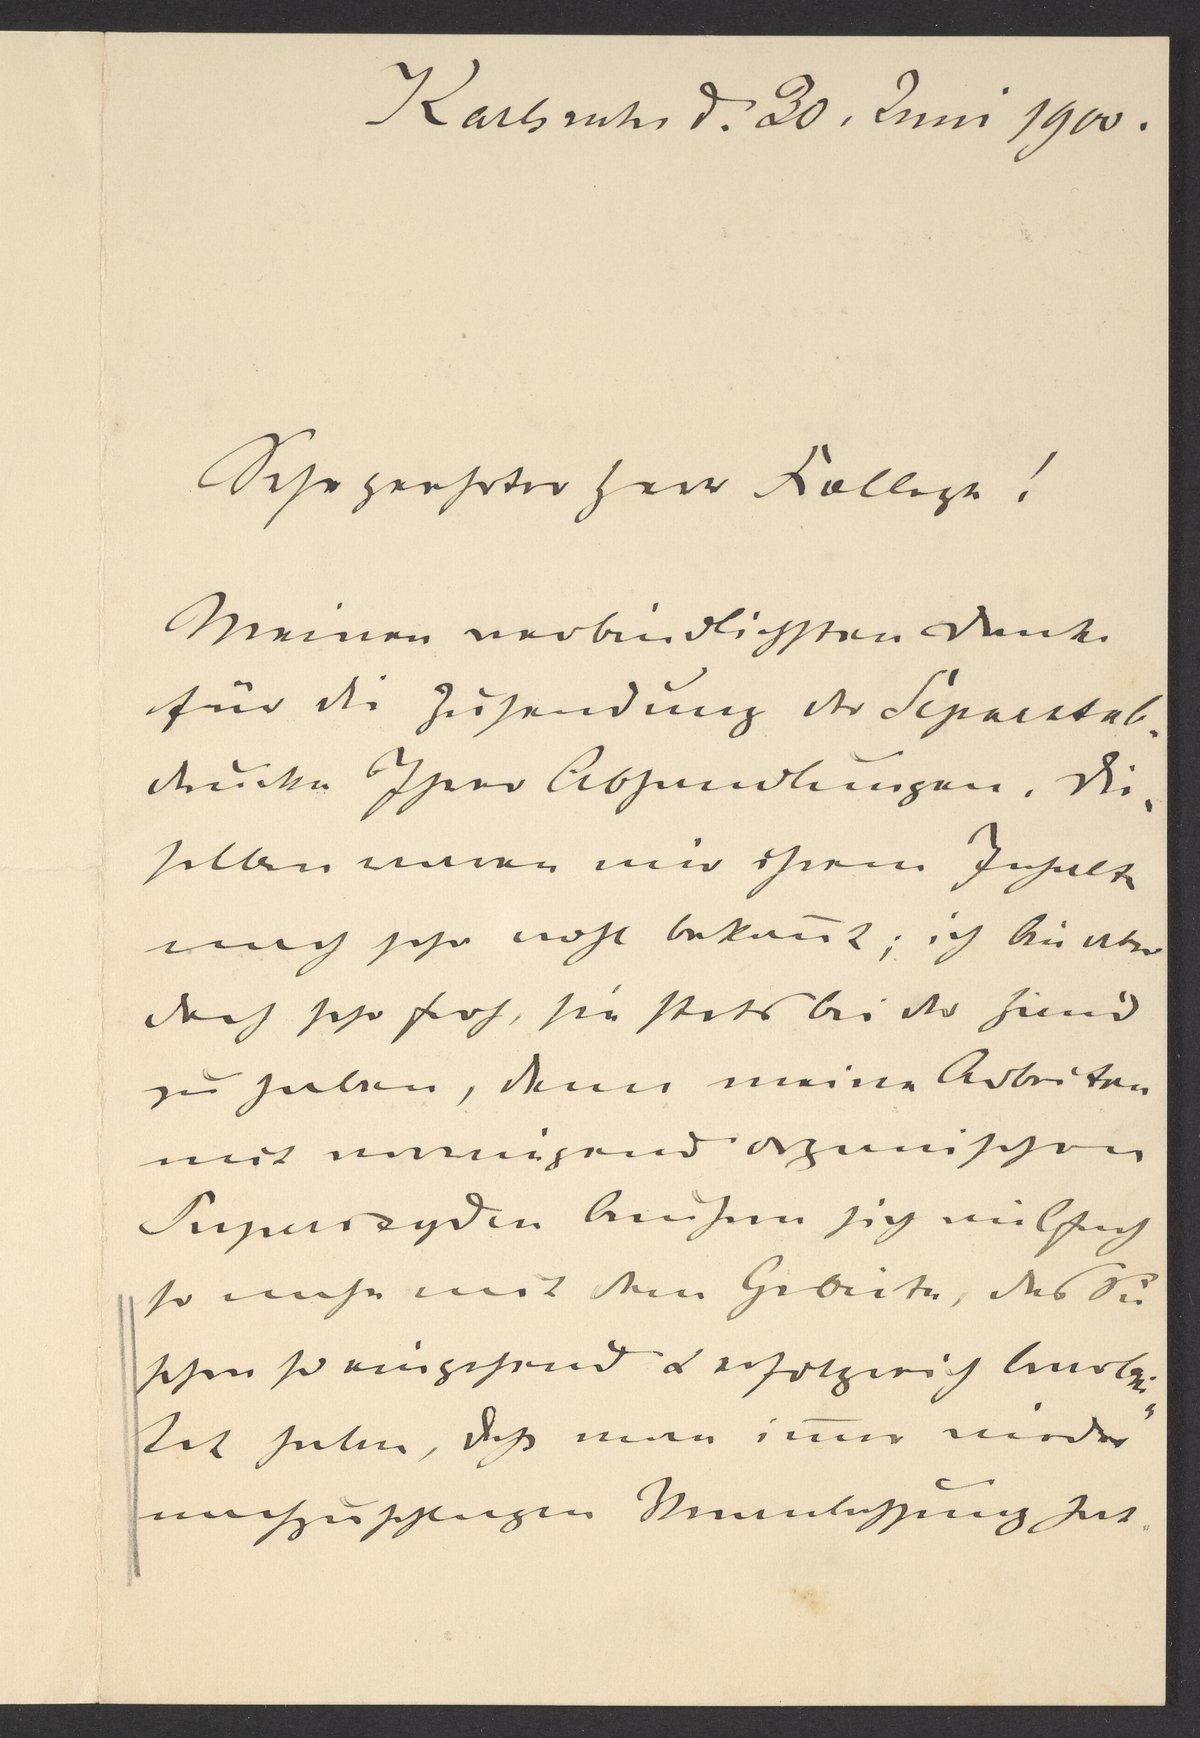 Karlsruhe d. 30. Juni 1900.
Sehr geehrter Herr Kollege!
Meinen verbindlichsten Dank
für die Zusendung der Separatab-
drucke Ihrer Abhandlungen. Die-
selben waren mir ihrem Inhalte
nach sehr wohl bekannt; ich bin aber
doch sehr froh, sie stets bei der Hand
zu haben, denn meine Arbeiten
mit vorwiegend organischen
Superoxyden berühren sich vielfach
so nahe mit dem Gebiete, das Sie
schon so eingehend & erfolgreich bearbei-
tet haben, daß man immer wieder
nachzuschlagen Veranlassung hat.